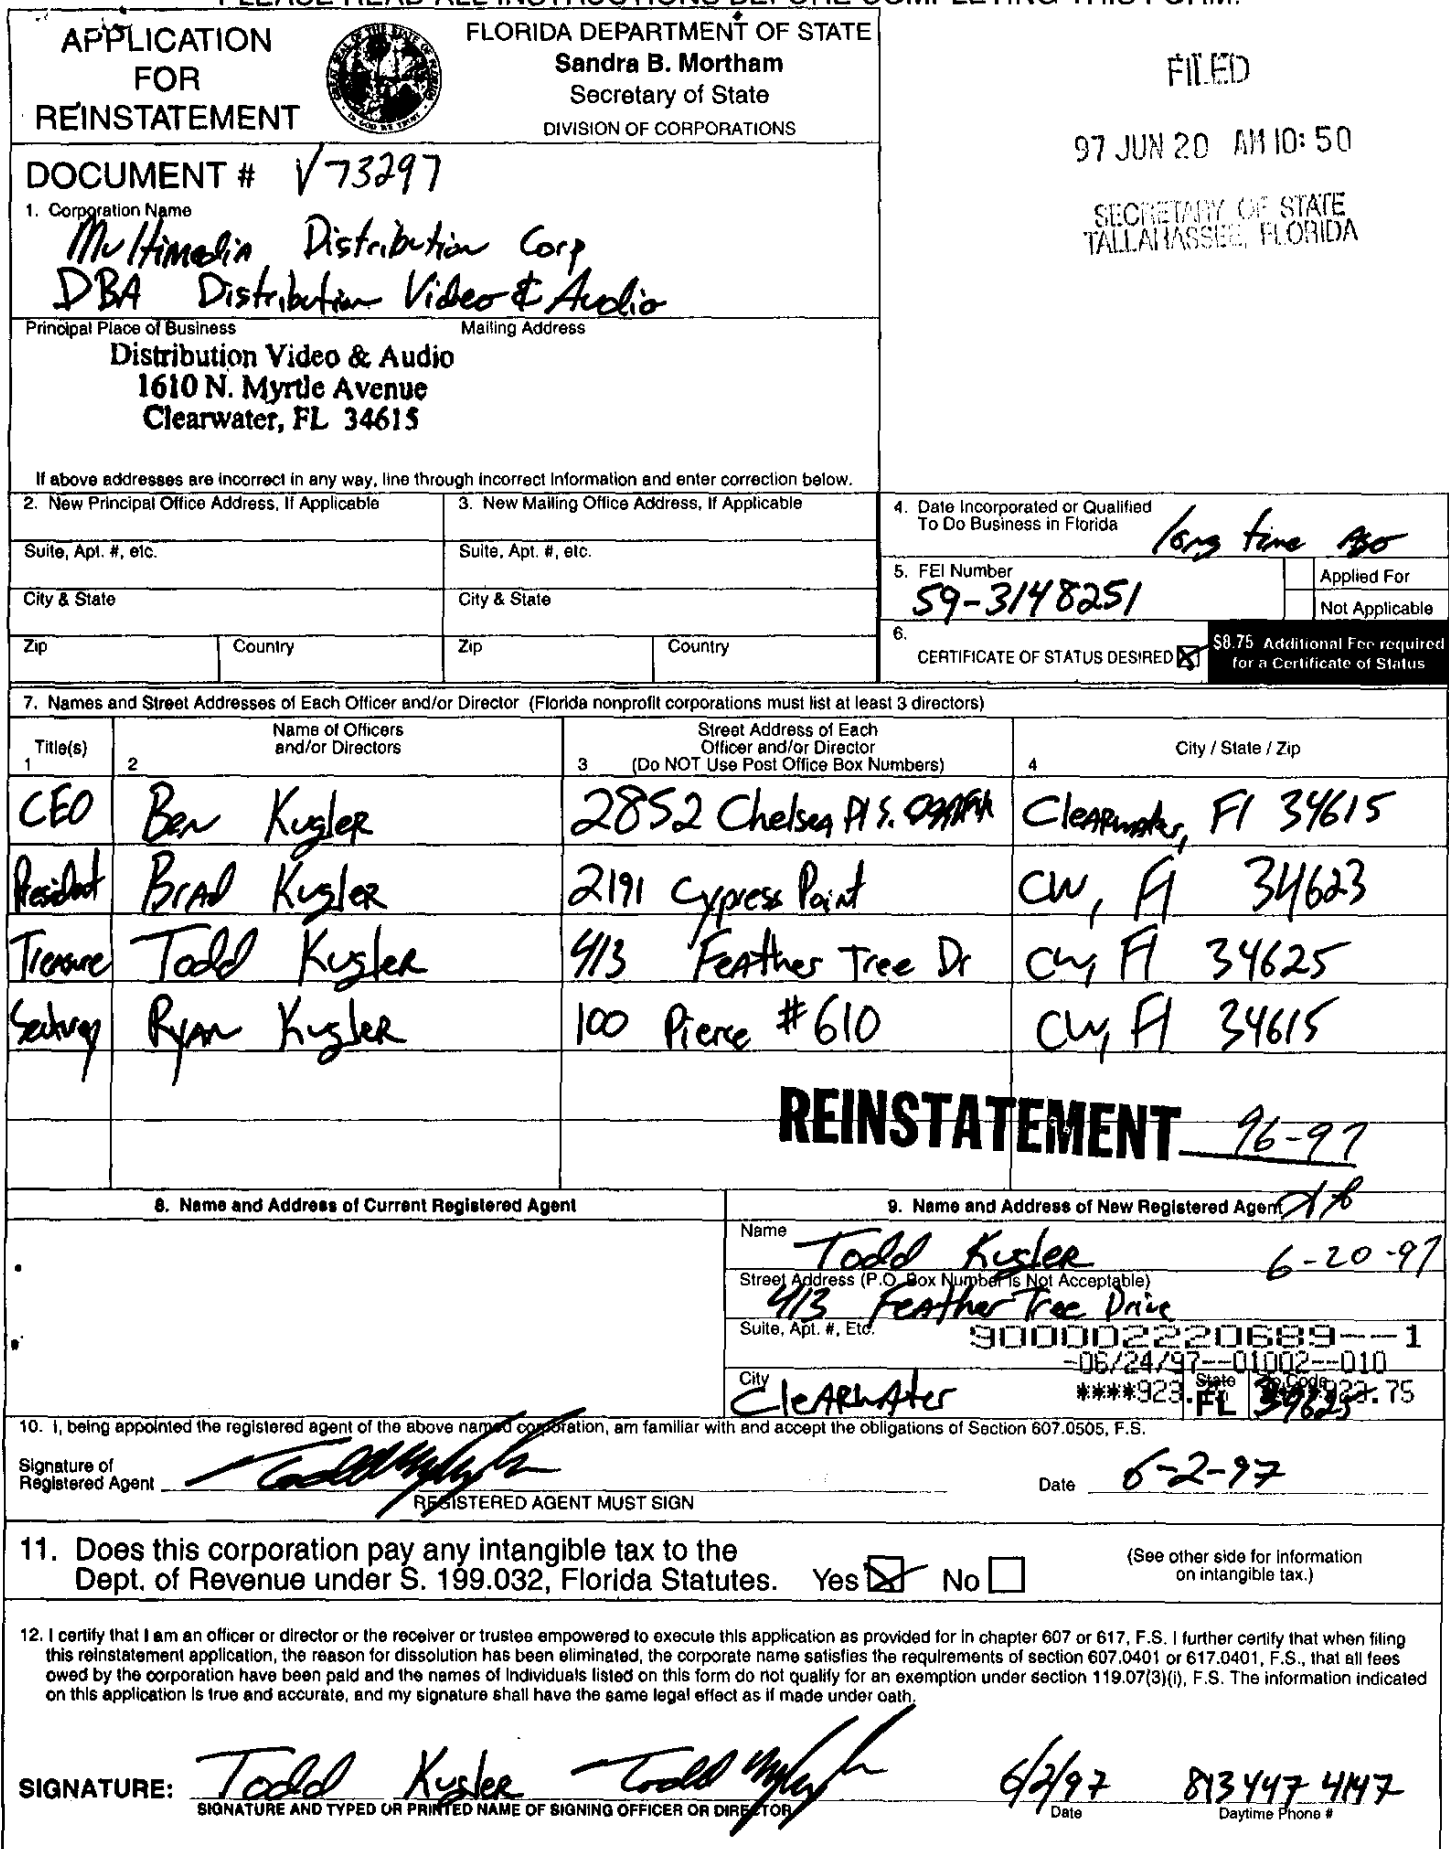 PLEASE READ ALL INSTRUCTIONS BEFORE COMPLETING THIS FORM.
APPLICATION
FOR
REINSTATEMENT
FLORIDA DEPARTMENT OF STATE
Sandra B. Mortham
Secretary of State
DIVISION OF CORPORATIONS
FILED
97 JUN 20 AM 10:50
SECRETARY OF STATE
TALLAHASSEE, FLORIDA
DOCUMENT # V73297
1. Corporation Name
Multimedia Distribution Corp
DBA Distribution Video & Audio
Principal Place of Business Mailing Address
Distribution Video & Audio
1610 N. Myrtle Avenue
Clearwater, FL 34615
If above addresses are incorrect in any way, line through incorrect information and enter correction below.
2. New Principal Office Address, If Applicable
3. New Mailing Office Address, If Applicable
Suite, Apt. #, etc.
Suite, Apt. #, etc.
City & State
City & State
Zip Country
Zip Country
4. Date Incorporated or Qualified
To Do Business in Florida
long time Ago
5. FEI Number
59-3148251
Applied For
Not Applicable
6.
CERTIFICATE OF STATUS DESIRED
$8.75 Additional Fee required
for a Certificate of Status
7. Names and Street Addresses of Each Officer and/or Director (Florida nonprofit corporations must list at least 3 directors)
Title(s)
1
Name of Officers
and/or Directors
2
Street Address of Each
Officer and/or Director
3 (Do NOT Use Post Office Box Numbers)
City / State / Zip
4
CEO Ben Kugler 2852 Chelsea Pl S. Clearwater, Fl 34615
President Brad Kugler 2191 Cypress Point CW, Fl 34623
Treasure Todd Kugler 413 Feather Tree Dr CW, Fl 34625
Ryan Kugler 100 Pierce #610 CW, Fl 34615
REINSTATEMENT 96-97
8. Name and Address of Current Registered Agent
9. Name and Address of New Registered Agent
Name
Todd Kugler
6-20-97
Street Address (P.O. Box Number is Not Acceptable)
413 Feather Tree Drive
Suite, Apt. #, Etc.
900002220689--1
-06/24/97--01002--010
City
Clearwater
****923.
State
FL
Zip Code
34625
.75
10. I, being appointed the registered agent of the above named corporation, am familiar with and accept the obligations of Section 607.0505, F.S.
Signature of
Registered Agent
REGISTERED AGENT MUST SIGN
Date 6-2-97
11. Does this corporation pay any intangible tax to the
Dept. of Revenue under S. 199.032, Florida Statutes. Yes No
(See other side for information
on intangible tax.)
12. I certify that I am an officer or director or the receiver or trustee empowered to execute this application as provided for in chapter 607 or 617, F.S. I further certify that when filing
this reinstatement application, the reason for dissolution has been eliminated, the corporate name satisfies the requirements of section 607.0401 or 617.0401, F.S., that all fees
owed by the corporation have been paid and the names of individuals listed on this form do not qualify for an exemption under section 119.07(3)(i), F.S. The information indicated
on this application is true and accurate, and my signature shall have the same legal effect as if made under oath.
SIGNATURE: Todd Kugler 6/2/97 813 447 4147
SIGNATURE AND TYPED OR PRINTED NAME OF SIGNING OFFICER OR DIRECTOR
Date
Daytime Phone #